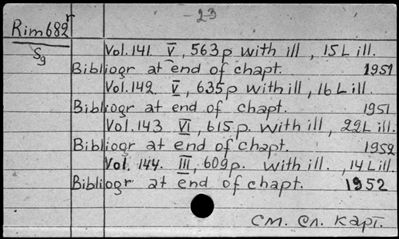 - 23
Rim682r
Sg
Vol.141. V, 563p with ill, 15L ill.
Bibliogr at end of chapt. 1951
Vol.142. V, 635p with ill, 16L ill.
Bibliogr at end of chapt. 1951
Vol.143 VI, 615p. with ill, 22L ill.
Bibliogr at end of chapt. 1952
Vol. 144. III, 609p. with ill., 14L ill.
Bibliogr at end of chapt. 1952
См. Сл. карт.